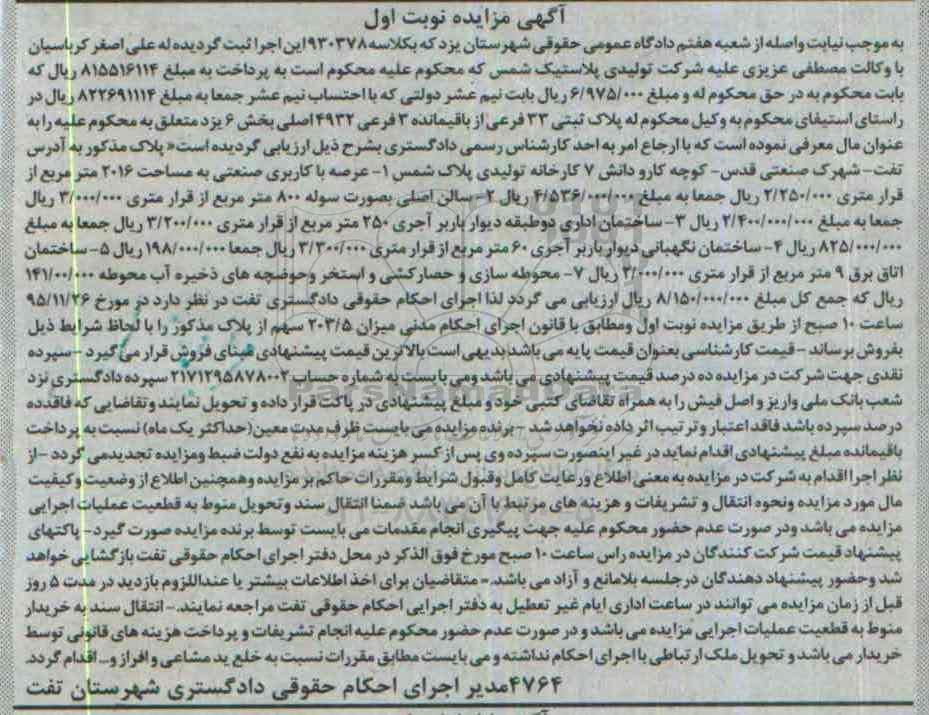 آگهی مزایده نوبت اول
به موجب نیابت واصله از شعبه هفتم دادگاه عمومی حقوقی شهرستان یزد که بکلاسه ۹۳۰۳۷۸ این اجرا ثبت گردیده له علی اصغر کرباسیان
با وکالت مصطفی عزیزی علیه شرکت تولیدی پلاستیک شمس که محکوم علیه محکوم است به پرداخت به مبلغ ۸۱۵۵۱۶۱۱۴ ریال که
بابت محکوم به در حق محکوم له و مبلغ ۶/۹۷۵/۰۰۰ ریال بابت نیم عشر دولتی که با احتساب نیم عشر جمعا به مبلغ ۸۲۲۶۹۱۱۱۴ ریال در
راستای استیفای محکوم به وکیل محکوم له پلاک ثبتی ۳۳ فرعی از باقیمانده ۳ فرعی ۴۹۳۲ اصلی بخش ۶ یزد متعلق به محکوم علیه را به
عنوان مال معرفی نموده است که با ارجاع امر به احد کارشناس رسمی دادگستری بشرح ذیل ارزیابی گردیده است« پلاک مذکور به آدرس
تفت- شهرک صنعتی قدس- کوچه کارو دانش ۷ کارخانه تولیدی پلاک شمس ۱- عرصه با کاربری صنعتی به مساحت ۲۰۱۶ متر مربع از
قرار متری ۲/۲۵۰/۰۰۰ ریال جمعا به مبلغ ۴/۵۳۶/۰۰۰/۰۰۰ ریال ۲- سالن اصلی بصورت سوله ۸۰۰ متر مربع از قرار متری ۳/۰۰۰/۰۰۰ ریال
جمعا به مبلغ ۲/۴۰۰/۰۰۰/۰۰۰ ریال ۳- ساختمان اداری دوطبقه دیوار باربر آجری ۲۵۰ متر مربع از قرار متری ۳/۲۰۰/۰۰۰ ریال جمعا به مبلغ
۸۲۵/۰۰۰/۰۰۰ ریال ۴- ساختمان نگهبانی دیوار باربر آجری ۶۰ متر مربع از قرار متری ۳/۳۰۰/۰۰۰ ریال جمعا ۱۹۸/۰۰۰/۰۰۰ ریال ۵- ساختمان
اتاق برق ۹ متر مربع از قرار متری ۲/۰۰۰/۰۰۰ ریال ۷- محوطه سازی و حصارکشی و استخر وحوضچه های ذخیره آب محوطه ۱۴۱/۰۰/۰۰۰
ریال که جمع کل مبلغ ۸/۱۵۰/۰۰۰/۰۰۰ ریال ارزیابی می گردد لذا اجرای احکام حقوقی دادگستری تفت در نظر دارد در مورخ ۹۵/۱۱/۲۶
ساعت ۱۰ صبح از طریق مزایده نوبت اول ومطابق با قانون اجرای احکام مدنی میزان ۲۰۳/۵ سهم از پلاک مذکور را با لحاظ شرایط ذیل
بفروش برساند - قیمت کارشناسی بعنوان قیمت پایه می باشد بدیهی است بالاترین قیمت پیشنهادی مبنای فروش قرار می گیرد -سپرده
نقدی جهت شرکت در مزایده ده درصد قیمت پیشنهادی می باشد ومی بایست به شماره حساب ۲۱۷۱۲۹۵۸۷۸۰۰۲ سپرده دادگستری نزد
شعب بانک ملی واریز و اصل فیش را به همراه تقاضای کتبی خود و مبلغ پیشنهادی در پاکت قرار داده و تحویل نمایند وتقاضایی که فاقد ده
درصد سپرده باشد فاقد اعتبار وترتیب اثر داده نخواهد شد - برنده مزایده می بایست ظرف مدت معین(حداکثر یک ماه) نسبت به پرداخت
باقیمانده مبلغ پیشنهادی اقدام نماید در غیر اینصورت سپرده وی پس از کسر هزینه مزایده به نفع دولت ضبط ومزایده تجدید می گردد -از
نظر اجرا اقدام به شرکت در مزایده به معنی اطلاع ورعایت کامل وقبول شرایط ومقررات حاکم بر مزایده وهمچنین اطلاع از وضعیت وکیفیت
مال مورد مزایده ونحوه انتقال و تشریفات و هزینه های مرتبط با آن می باشد ضمنا انتقال سند وتحویل منوط به قطعیت عملیات اجرایی
مزایده می باشد ودر صورت عدم حضور محکوم علیه جهت پیگیری انجام مقدمات می بایست توسط برنده مزایده صورت گیرد- پاکتهای
پیشنهاد قیمت شرکت کنندگان در مزایده راس ساعت ۱۰ صبح مورخ فوق الذکر در محل دفتر اجرای احکام حقوقی تفت بازگشایی خواهد
شد وحضور پیشنهاد دهندگان درجلسه بلامانع و آزاد می باشد.- متقاضیان برای اخذ اطلاعات بیشتر یا عنداللزوم بازدید در مدت ۵ روز
قبل از زمان مزایده می توانند در ساعت اداری ایام غیر تعطیل به دفتر اجرایی احکام حقوقی تفت مراجعه نمایند.- انتقال سند به خریدار
منوط به قطعیت عملیات اجرایی مزایده می باشد و در صورت عدم حضور محکوم علیه انجام تشریفات و پرداخت هزینه های قانونی توسط
خریدار می باشد و تحویل ملک ارتباطی با اجرای احکام نداشته و می بایست مطابق مقررات نسبت به خلع ید مشاعی و افراز و... اقدام گردد.
۴۷۶۴مدیر اجرای احکام حقوقی دادگستری شهرستان تفت